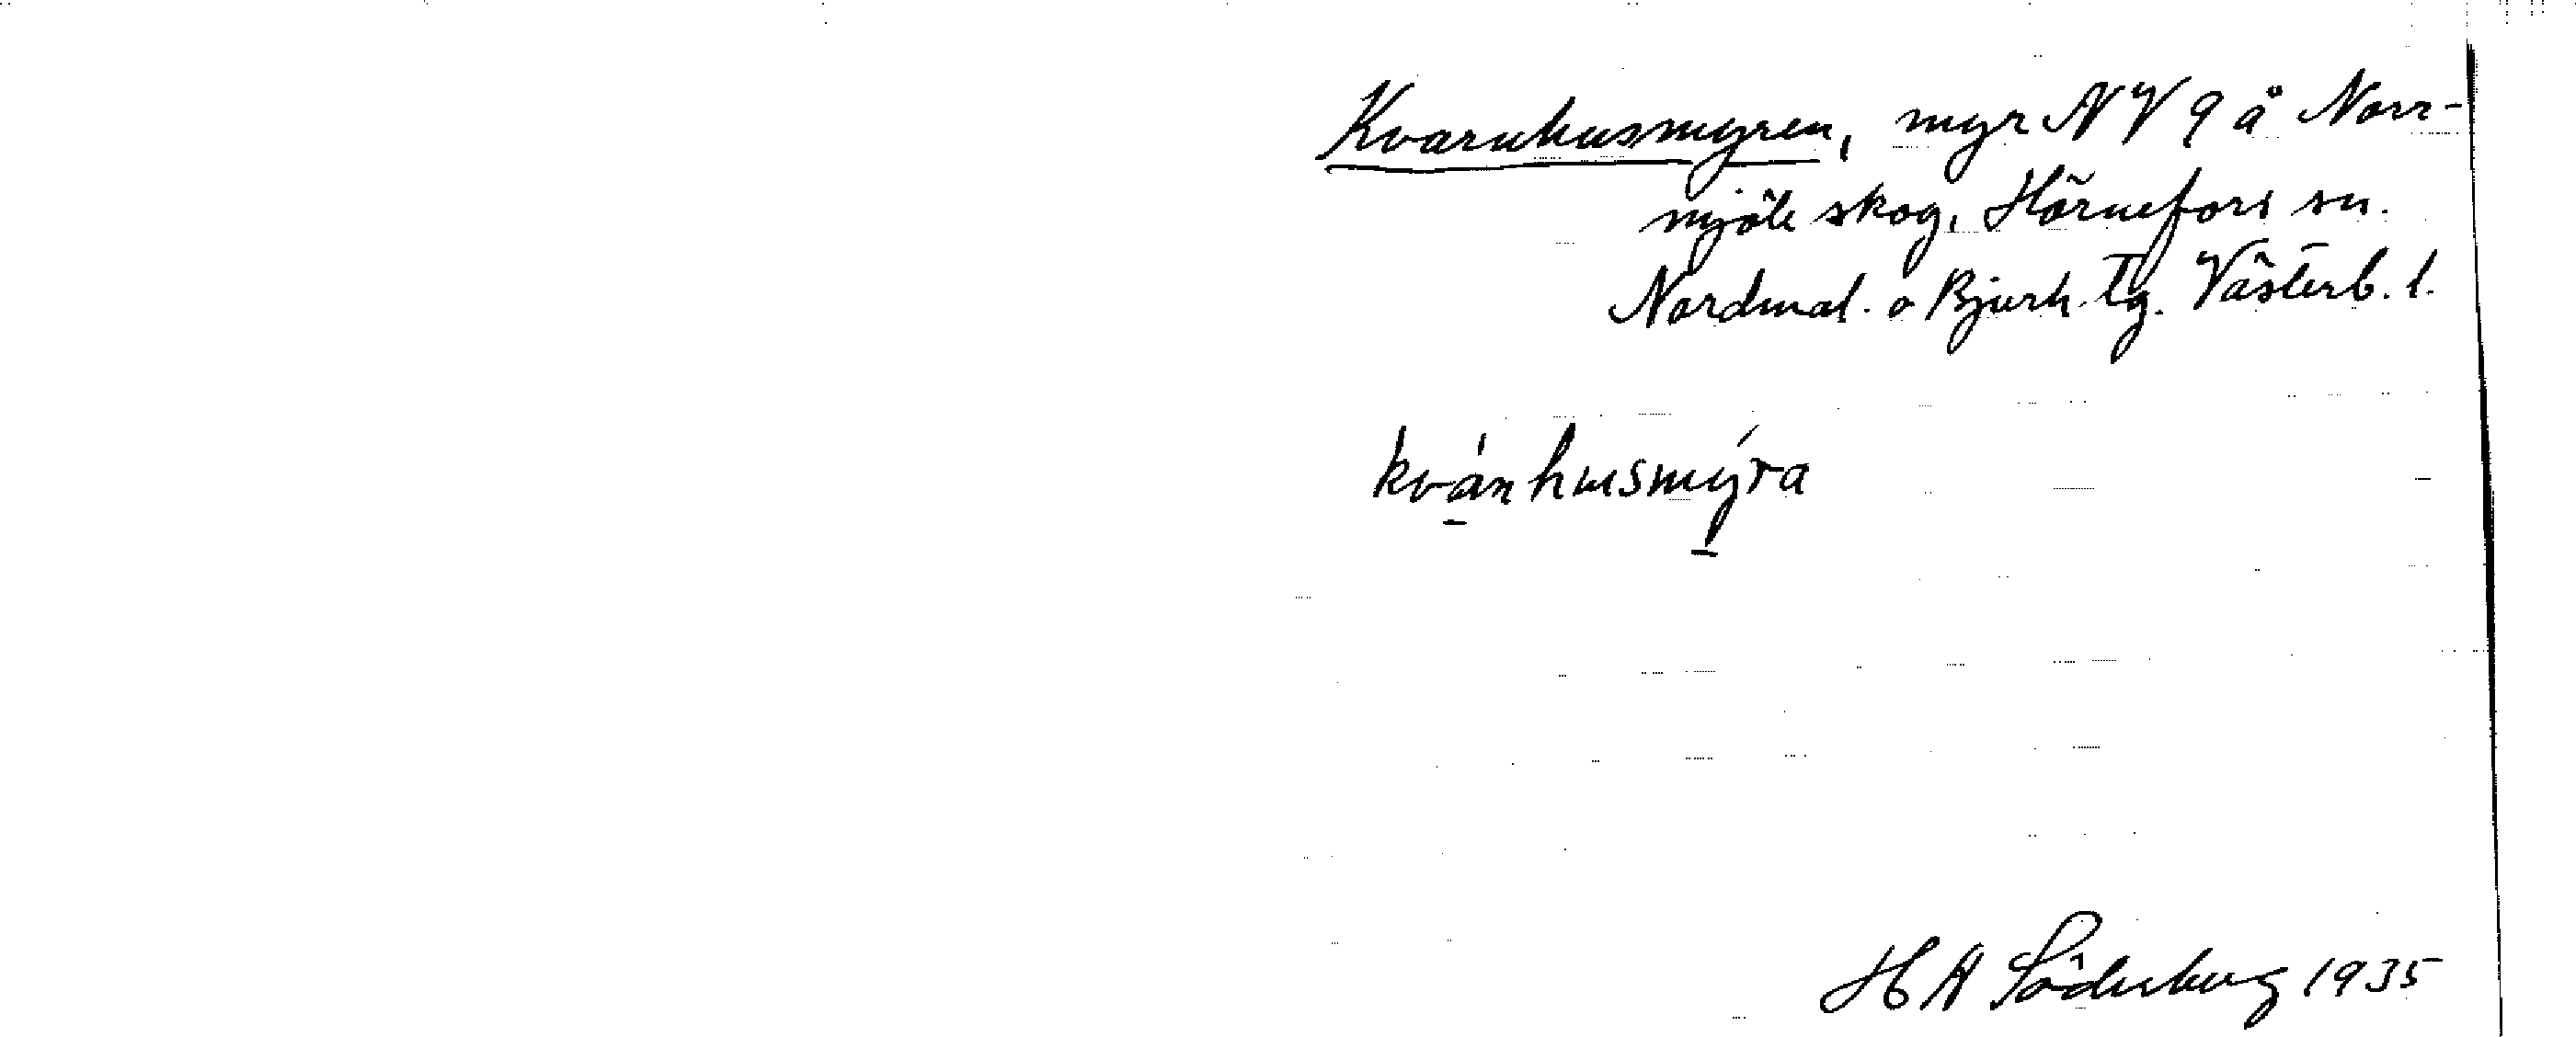 Kvarnhusmyren, myr NV 9 å Norr-
mjöle skog, Hörnefors sn.
Nordmal. o Bjurh. tg. Västerb. l.
kvánhusmýra
H A Söderberg 1935